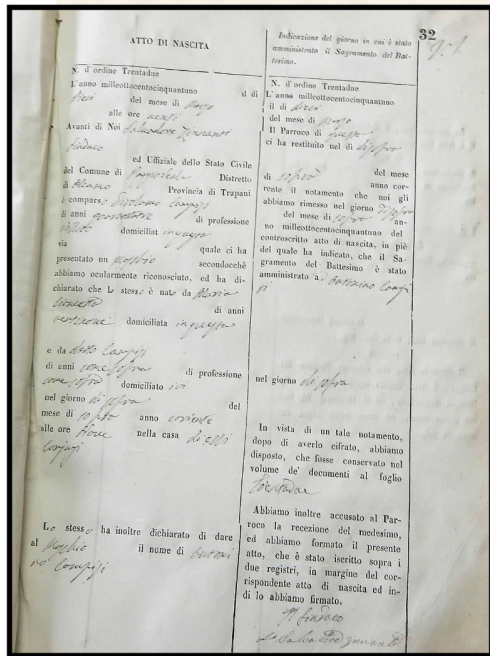 32
ATTO DI NASCITA
N. d'ordine Trentadue
L'anno milleottocentocinquantuno il dì
dieci del mese di
alle ore venti
Avanti di Noi Salvadore
Sindaco
ed Uffiziale dello Stato Civile
del Comune di Distretto
di Alcamo Provincia di Trapani
è comparso Girolamo Campisi
di anni di professione
domiciliat in questa
via quale ci ha
presentato un maschio secondocchè
abbiamo ocularmente riconosciuto, ed ha di-
chiarato che lo stesso è nato da Maria
di anni
domiciliata in questa
e da detto Campisi
di anni come sopra di professione
come sopra domiciliato ivi
nel giorno di sopra del
mese di sopra anno corrente
alle ore nella casa di essi
coniugi
Lo stesso ha inoltre dichiarato di dare
al maschio il nome di Antoni
no Campisi
Indicazione del giorno in cui è stato
amministrato il Sagramento del Bat-
tesimo.
N. d'ordine Trentadue
L'anno milleottocentocinquantuno
il dì dieci
del mese di
Il Parroco di questa
ci ha restituito nel dì di sopra
del mese
di sopra anno cor-
rente il notamento che noi gli
abbiamo rimesso nel giorno di sopra
del mese di sopra an-
no milleottocentocinquantuno del
controscritto atto di nascita, in piè
del quale ha indicato, che il Sa-
gramento del Battesimo è stato
amministrato a Antonino Campi
si
nel giorno di sopra
In vista di un tale notamento,
dopo di averlo cifrato, abbiamo
disposto, che fosse conservato nel
volume de' documenti al foglio
trentadue
Abbiamo inoltre accusato al Par-
roco la recezione del medesimo,
ed abbiamo formato il presente
atto, che è stato iscritto sopra i
due registri, in margine del cor-
rispondente atto di nascita ed in-
di lo abbiamo firmato.
Il Sindaco
Salvadore